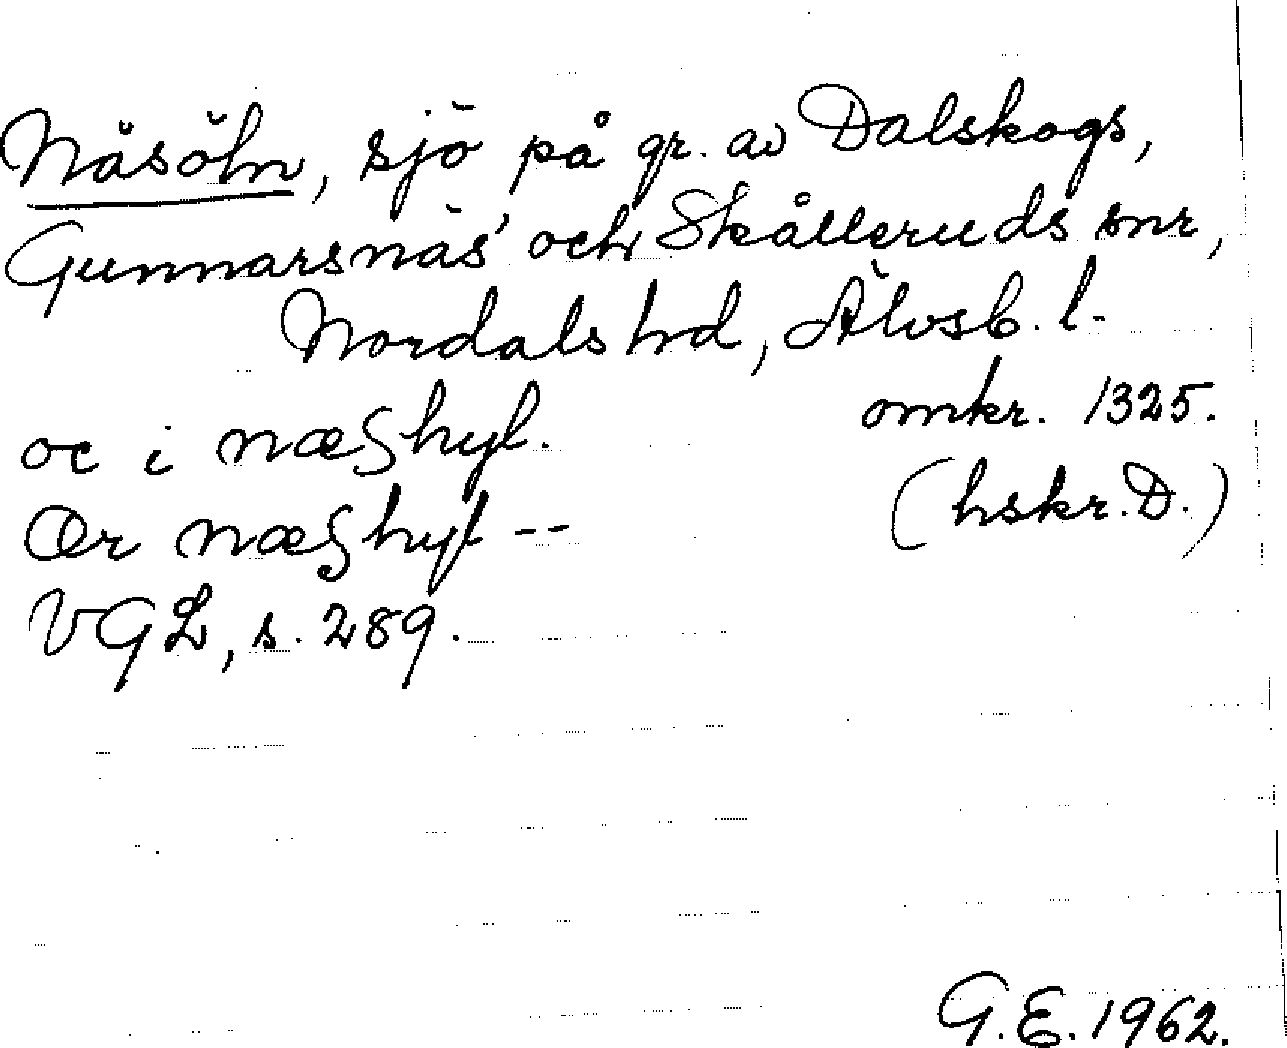 Näsöln, sjö på gr. av Dalskogs,
Gunnarsnäs' och Skålleruds snr,
Nordals hd, Älvsb. l.
oc i næshyl. omkr. 1325.
Ær næshyl -- (hskr. D.)
VGL, s. 289.
G.E. 1962.